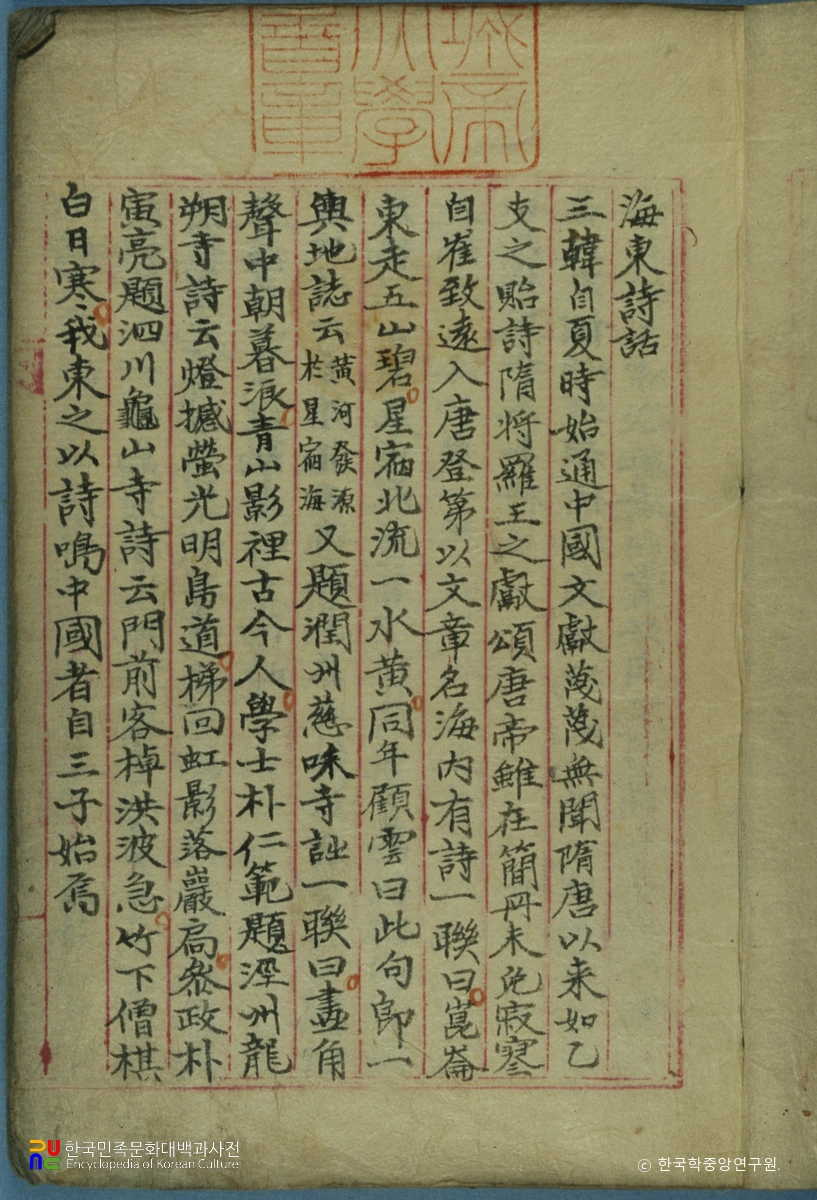 海東詩話
三韓自夏時始通中國文獻蔑蔑無聞隋唐以来如乙
支之貽詩隋将羅王之獻頌唐帝雖在簡冊未免寂寥
自崔致遠入唐登第以文章名海内有詩一聯曰崑崙
東走五山碧星宿北流一水黄同年顧雲曰此句即一
輿地誌云黄河發源於星宿海又題潤州慈味寺詩一聯曰畵角
聲中朝暮浪青山影裡古今人學士朴仁範題涇州龍
朔寺詩云燈撼螢光明鳥道梯回虹影落巖扃叅政朴
寅亮題泗川龜山寺詩云門前客棹洪波急竹下僧棋
白日寒我東之以詩鳴中國者自三子始焉
한국민족문화대백과사전
Encyclopedia of Korean Culture
© 한국학중앙연구원.